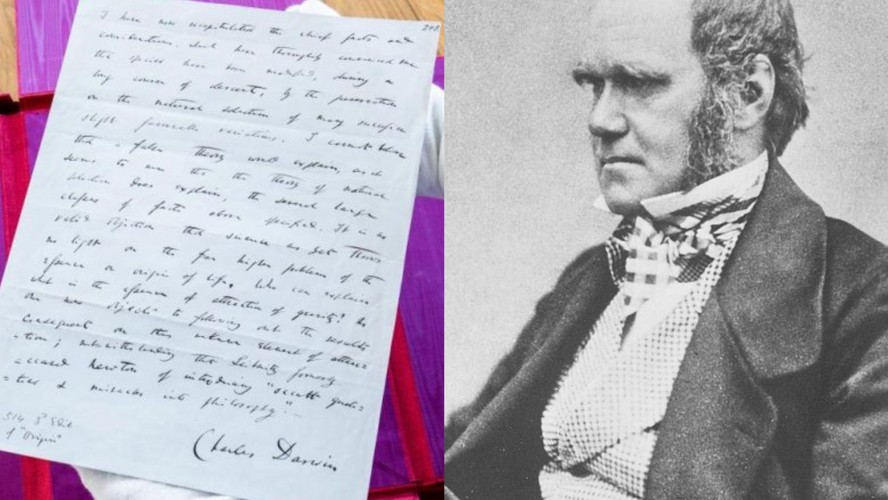 I have now recapitulated the chief facts and
considerations, which have thoroughly convinced me
that species have been modified, during a
long course of descent, by the preservation
or the natural selection of many successive
slight favourable variations. I cannot believe
that a false theory would explain, as it
seems to me that the theory of natural
selection does explain, the several large
classes of facts above specified. It is no
valid objection that science as yet throws
no light on the far higher problem of the
essence or origin of life. Who can explain
what is the essence of attraction of gravity? No
one now objects to following out the results
consequent on this unknown element of attrac
-tion; notwithstanding that Leibnitz formerly
accused Newton of introducing "occult quali
-ties & miracles into philosophy".—
Charles Darwin
514 3d Edit
of "Origin"